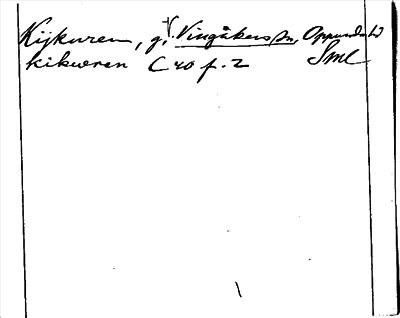 Kijkuren, g. V. Vingåkers sn, Oppunda hd
kikuren C 40 f. 2 Sml